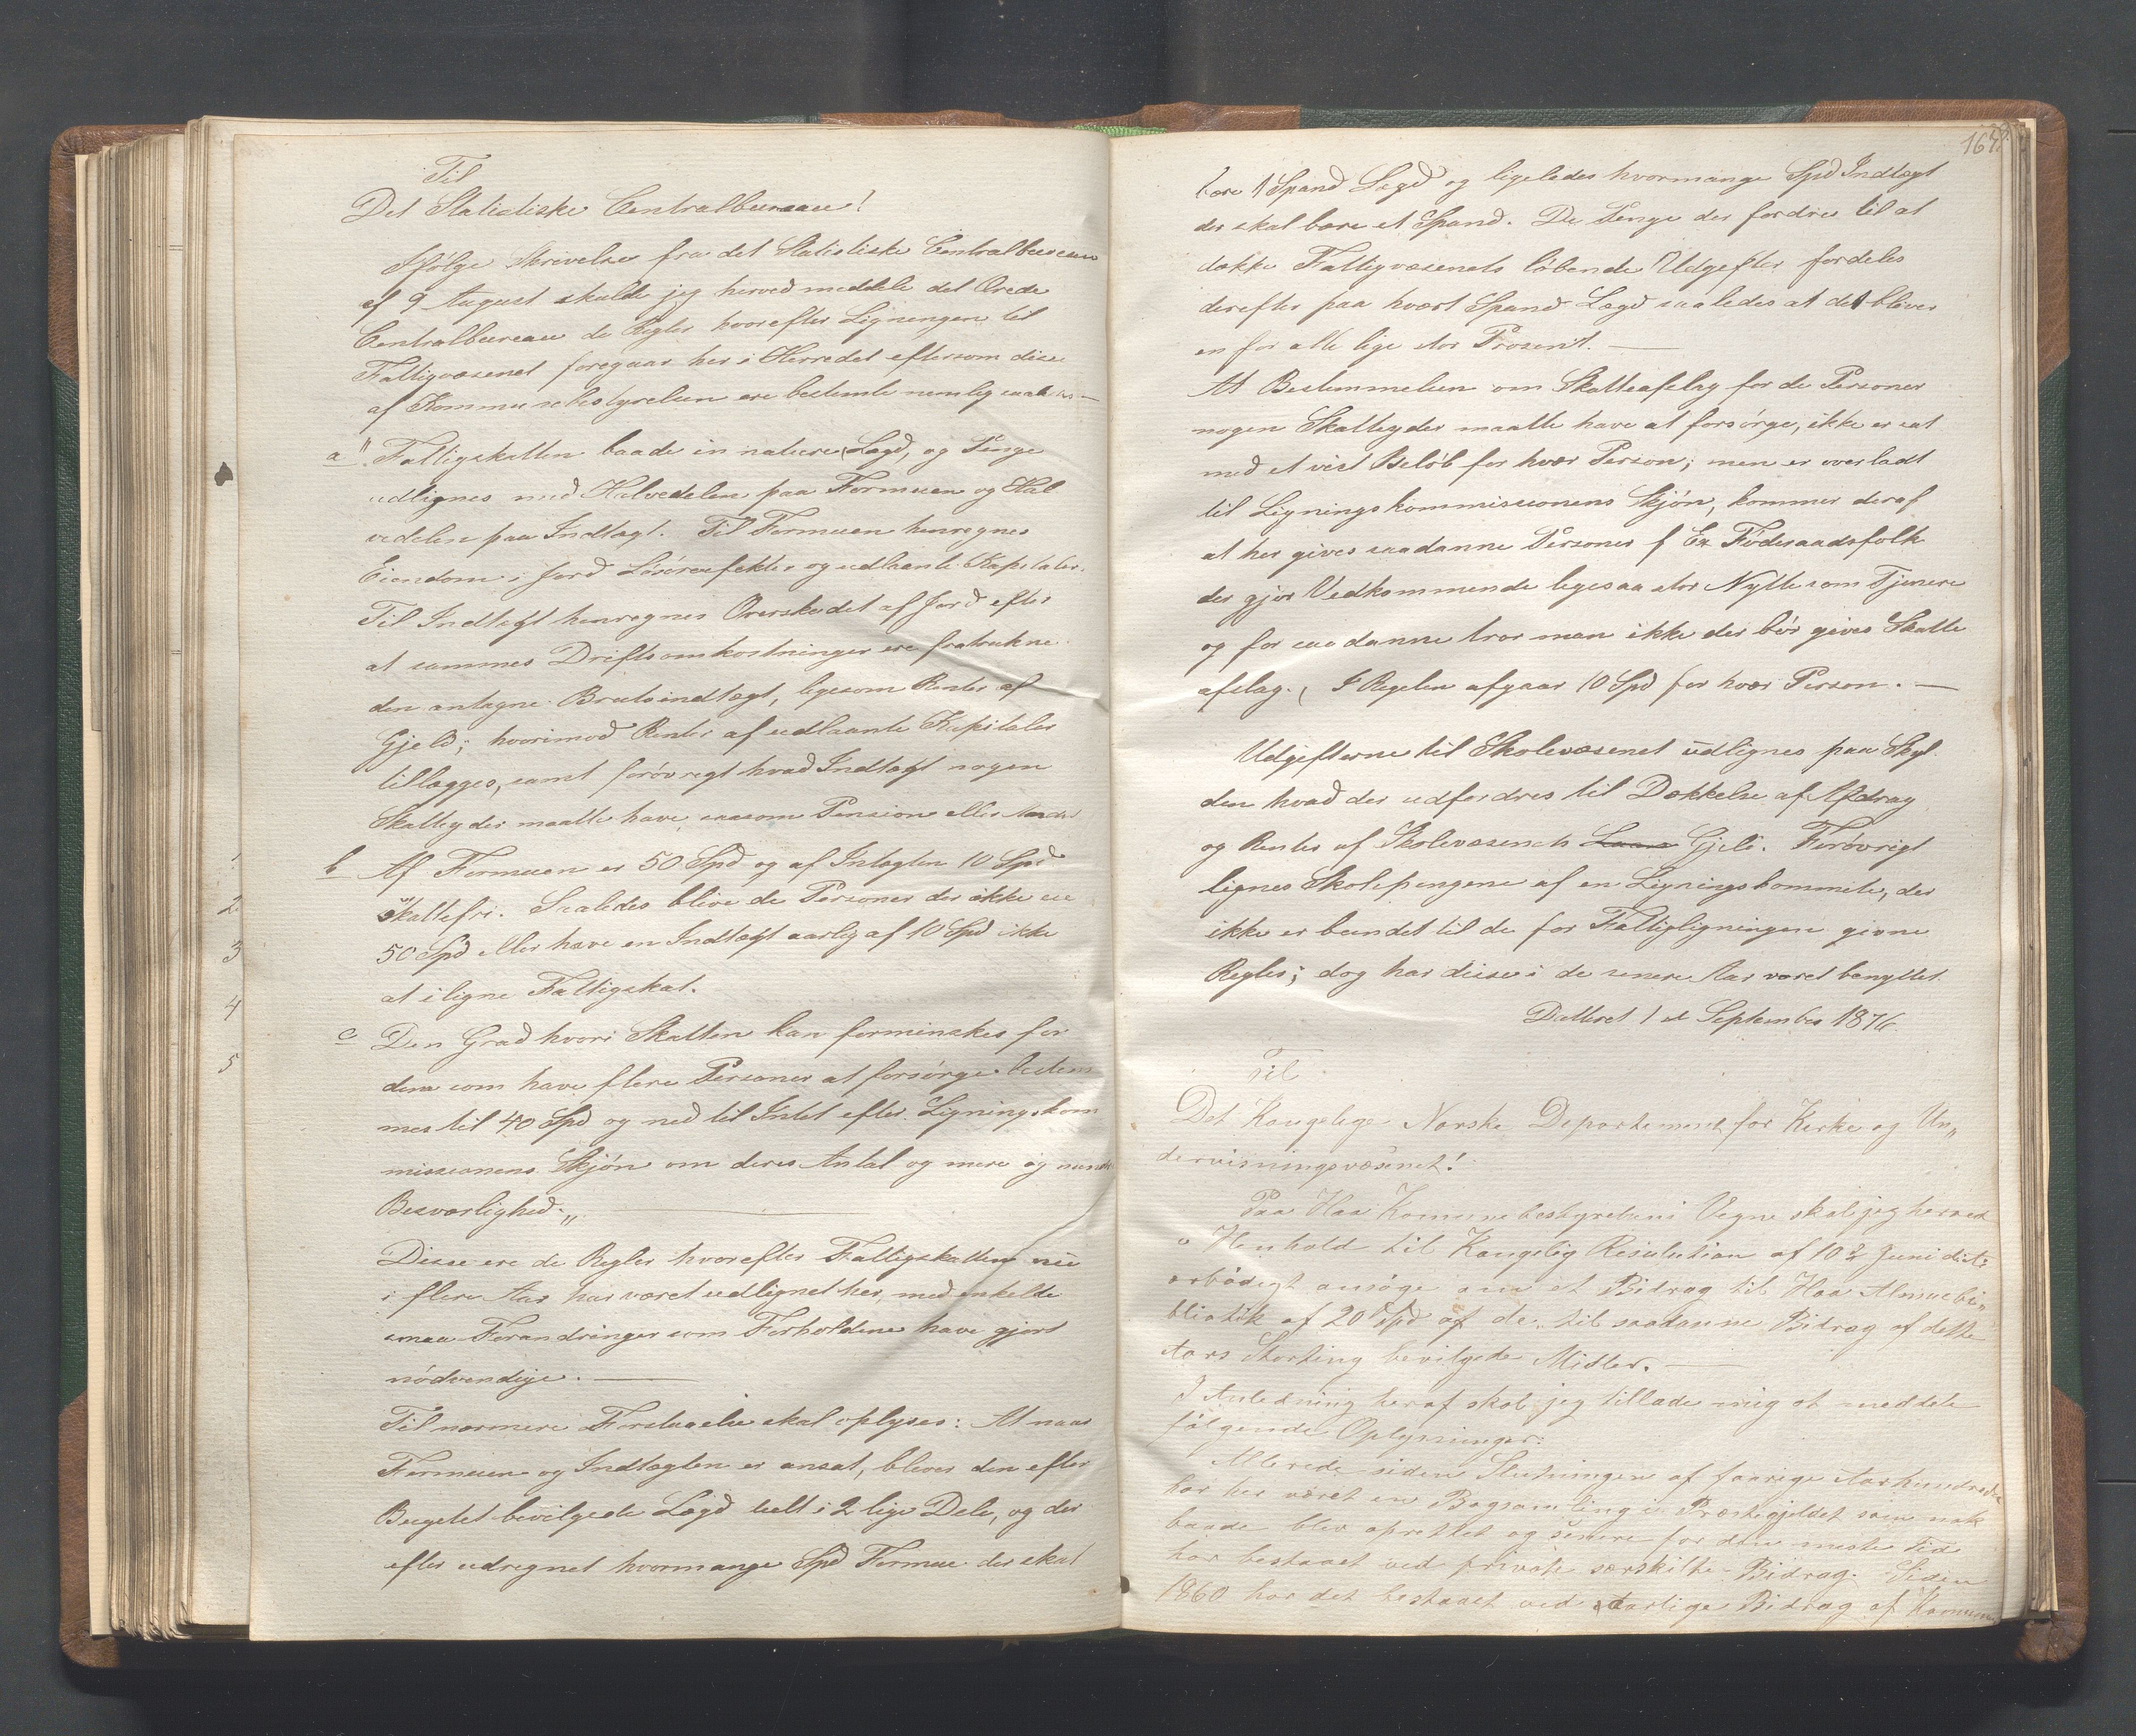 Til
Det Statistiske Centralbureau!
Ifølge Skrivelse fra det Statistiske Centralbureau
af 9 August skulde jeg herved meddele det Ærede
Centralbureau de Regler hvorefter Ligningen til
Fattigvæsenet foregaar her i Herredet eftersom disse
af Kommunebestyrelsen ere bestemte nemlig saaledes
a „Fattigskatten baade in natura, Lægd, og Penge
udlignes med Halvedelen paa Formuen og Hal
vedelen paa Indtægt. Til Formuen henregnes
Eiendom i Jord Løsøreefekter og udlaante Kapitaler.
Til Indtægt henregnes Overskudet af Jord efter
at sammes Driftsomkostninger ere fratrukne
den antagne Brutoindtægt, ligesom Renter af
Gjeld; hvorimod Renter af udlaante Kapitaler
tillægges, samt forøvrigt hvad Indtægt nogen
Skatteyder maatte have saasom Pension eller Andet
b Af Formuen er 50 Spd og af Intægten 10 Spd
Skattefri. Saaledes blive de Personer der ikke eie
50 Spd eller have en Indtægt aarlig af 10 Spd ikke
at iligne Fattigskat.
c Den Grad hvori Skatten kan forminskes for
dem som have flere Personer at forsørge bestem
mes til 40 Spd og ned til Intet efter Ligningskom
missionens Skjøn om deres Antal og mere og mindre
Besværlighed.„
Disse ere de Regler hvorefter Fattigskatten nu
i flere Aar har været udlignet her, med enkelte
smaa Forandringer som Forholdene have gjort
nødvendige.
Til nærmere Forstaaelse skal oplyses: At naar
Formuen og Indtægten er ansat, bliver den efter
Bugetet bevilgede Lægd delt i 2 lige Dele, og der
efter udregnet hvormange Spd Formue der skal
1
2
3
4
5
bære 1 Spand Lægd og ligeledes hvormange Spd Indtægt
der skal bære et Spand. De Penge der fordres til at
dække Fattigvæsenets løbende Udgifter fordeles
derefter paa hvert Spand Lægd saaledes at det bliver
en for alle lige stor Prosent.
At Bestemmelsen om Skatteafslag for de Personer
nogen Skatteyder maatte have at forsørge, ikke er sat
med et vist Beløb for hver Person; men er overladt
til Ligningskommissionens Skjøn, kommer deraf
at her gives saadanne Personer f Ex Føderaadsfolk
der gjør Vedkommende ligesaa stor Nytte som Tjenere
og for saadanne tror man ikke der bør gives Skatte
afslag. I Regelen afgaar 10 Spd for hver Person.
Udgifterne til Skolevæsenet udlignes paa Skyl
den hvad der udfordres til Dækkelse af Afdrag
og Renter af Skolevæsenets Laan Gjeld. Forøvrigt
lignes Skolepengene af en Ligningskommite, der
ikke er bundet til de for Fattigligningen givne
Regler; dog har disse i de senere Aar været benyttet.
Datteret 1 st September 1876
Til
Det Kongelige Norske Departement for Kirke og Un„
dervisningsvæsenet!
Paa Haa Kommunebestyrelses Vegne skal jeg herved
i Henhold til Kongelig Resulution af 10de Juni
ærbødigst ansøge om et Bidrag til Haa Almuebi„
bliotek af 20 Spd af de til saadanne Bidrag af dette
Aars Storting bevilgede Midler.
I Anledning heraf skal jeg tillade mig at meddele
følgende Oplysninger:
Allerede siden Slutningen af forrige Aarhundrede
har her været en Bogsamling i Præstegjeldet som nok
baade blev oprettet og senere for den meste Tid
har bestaaet ved private særskilte Bidrag. Siden
1860 har det bestaaet ved aarlige Bidrag af Kommunen